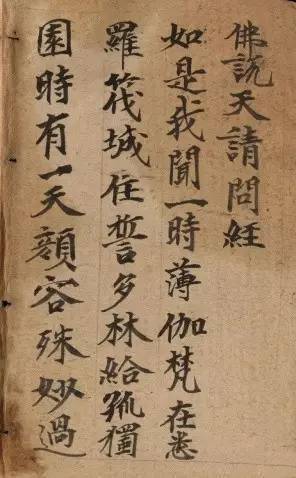 佛説天請問經
如是我聞一時薄伽梵在室
羅筏城住誓多林給孤獨
園時有一天顔容殊妙過